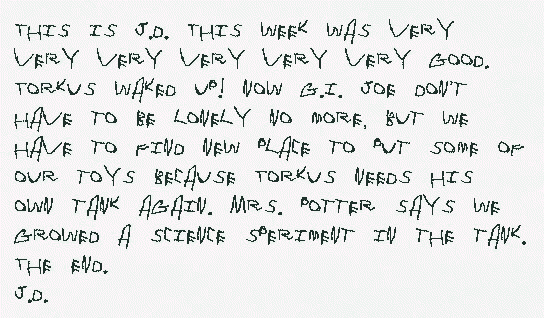 THIS IS J.D. THIS WEEK WAS VERY
VERY VERY VERY VERY VERY GOOD.
TORKUS WAKED UP! NOW G.I. JOE DON'T
HAVE TO BE LONELY NO MORE, BUT WE
HAVE TO FIND NEW PLACE TO PUT SOME OF
OUR TOYS BECAUSE TORKUS NEEDS HIS
OWN TANK AGAIN. MRS. POTTER SAYS WE
GROWED A SCIENCE SPERIMENT IN THE TANK.
THE END.
J.D.